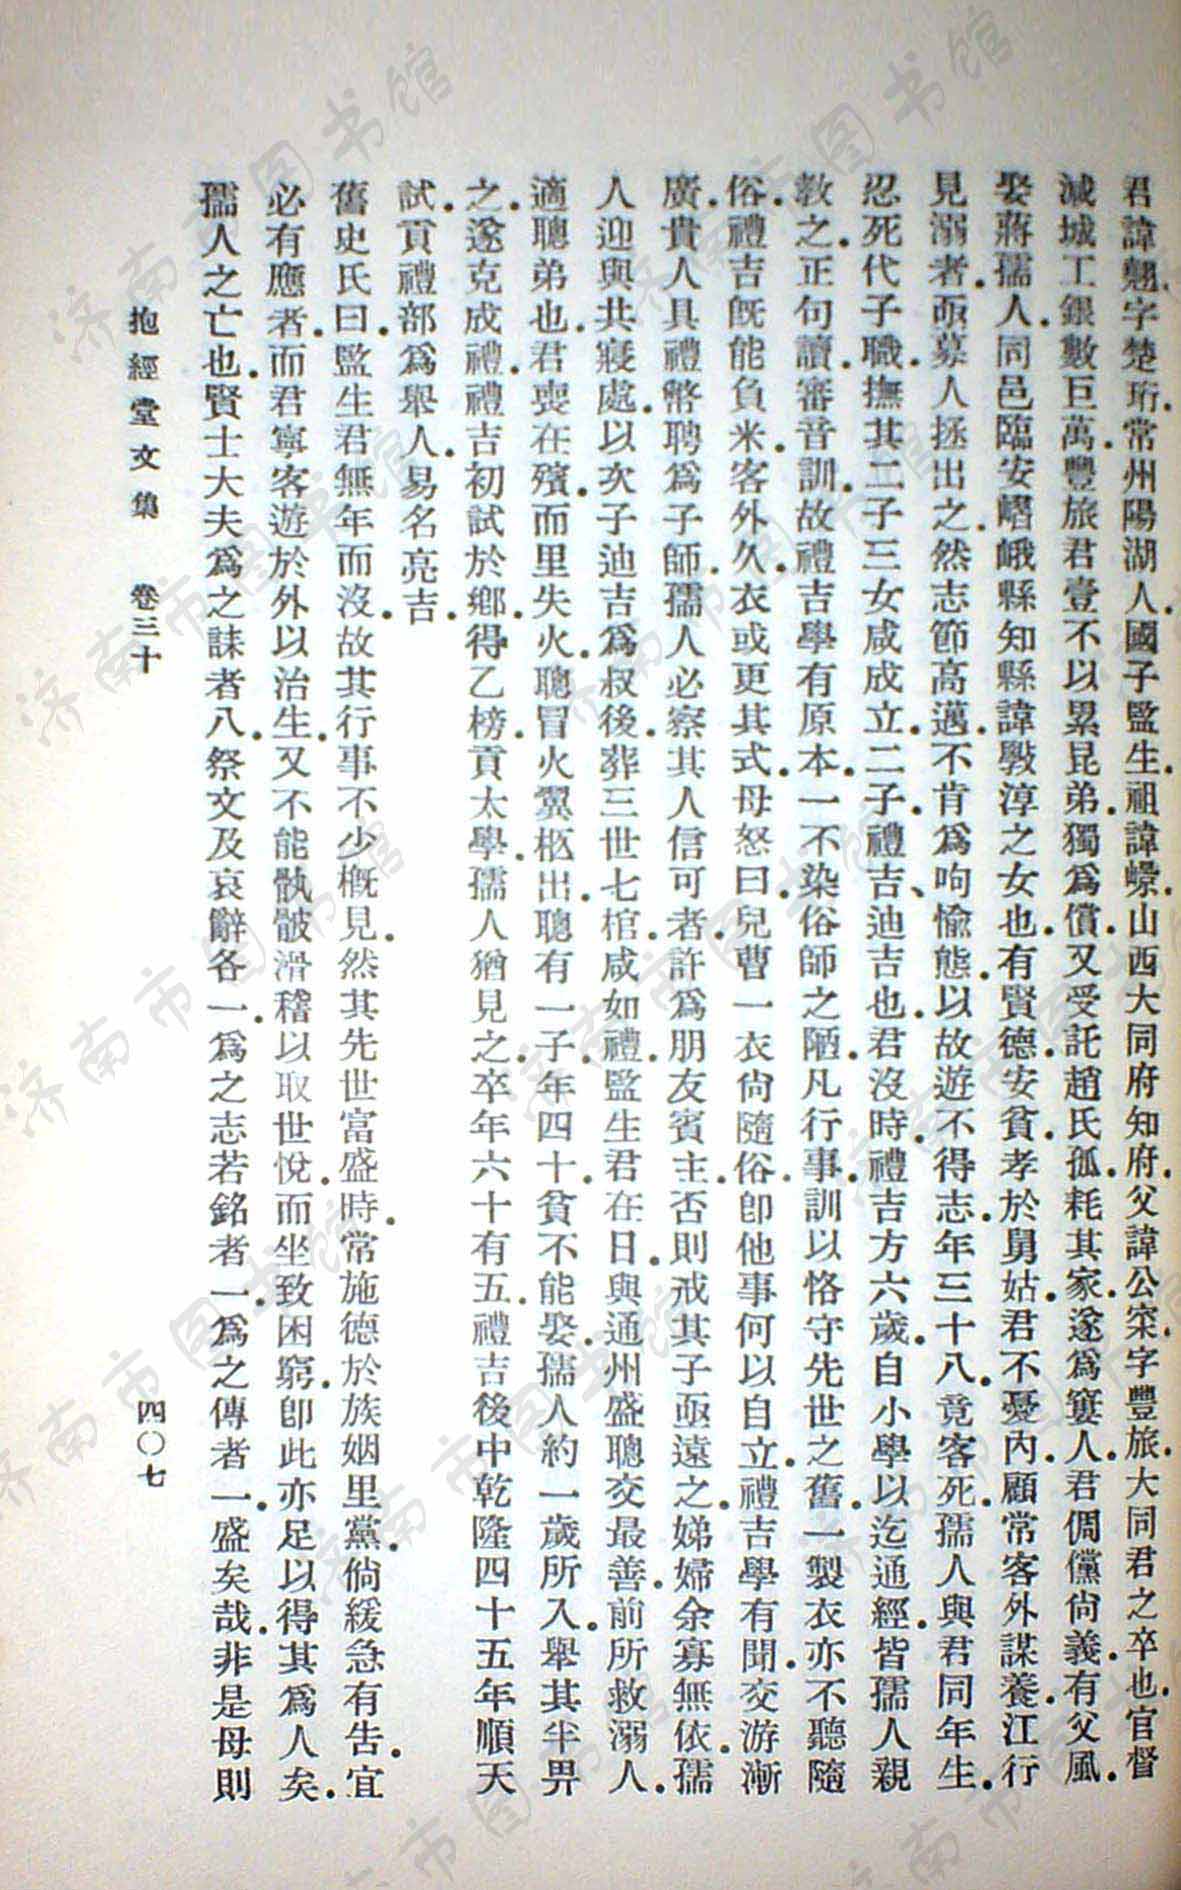 君諱翹字楚珩常州陽湖人國子監生祖諱嶸山西大同府知府父諱公寀字豐旅大同君之卒也官督
減城工銀數巨萬豐旅君壹不以累昆弟獨爲償又受託趙氏孤耗其家遂爲窶人君倜儻尙義有父風
娶蔣孺人同邑臨安嶍峨縣知縣諱斅淳之女也有賢德安貧孝於舅姑君不憂內顧常客外謀養江行
見溺者亟募人拯出之然志節高邁不肯爲呴愉態以故遊不得志年三十八竟客死孺人與君同年生
忍死代子職撫其二子三女咸成立二子禮吉、迪吉也君沒時禮吉方六歲自小學以迄通經皆孺人親
敎之正句讀審音訓故禮吉學有原本一不染俗師之陋凡行事訓以恪守先世之舊一製衣亦不聽隨
俗禮吉旣能負米客外久衣或更其式母怒曰兒曹一衣尙隨俗卽他事何以自立禮吉學有聞交游漸
廣貴人具禮幣聘爲子師孺人必察其人信可者許爲朋友賓主否則戒其子亟遠之娣婦余寡無依孺
人迎與共寢處以次子迪吉爲叔後葬三世七棺咸如禮監生君在日與通州盛聰交最善前所救溺人
適聰弟也君喪在殯而里失火聰冒火翼柩出聰有一子年四十貧不能娶孺人約一歲所入舉其半畀
之遂克成禮禮吉初試於鄕得乙榜貢太學孺人猶見之卒年六十有五禮吉後中乾隆四十五年順天
試貢禮部爲舉人易名亮吉
舊史氏曰監生君無年而沒故其行事不少概見然其先世富盛時常施德於族姻里黨倘緩急有告宜
必有應者而君寧客遊於外以治生又不能骫骳滑稽以取世悅而坐致困窮卽此亦足以得其爲人矣
孺人之亡也賢士大夫爲之誄者八祭文及哀辭各一爲之志若銘者一爲之傳者一盛矣哉非是母則
抱經堂文集 卷三十 四〇七
济南市图书馆